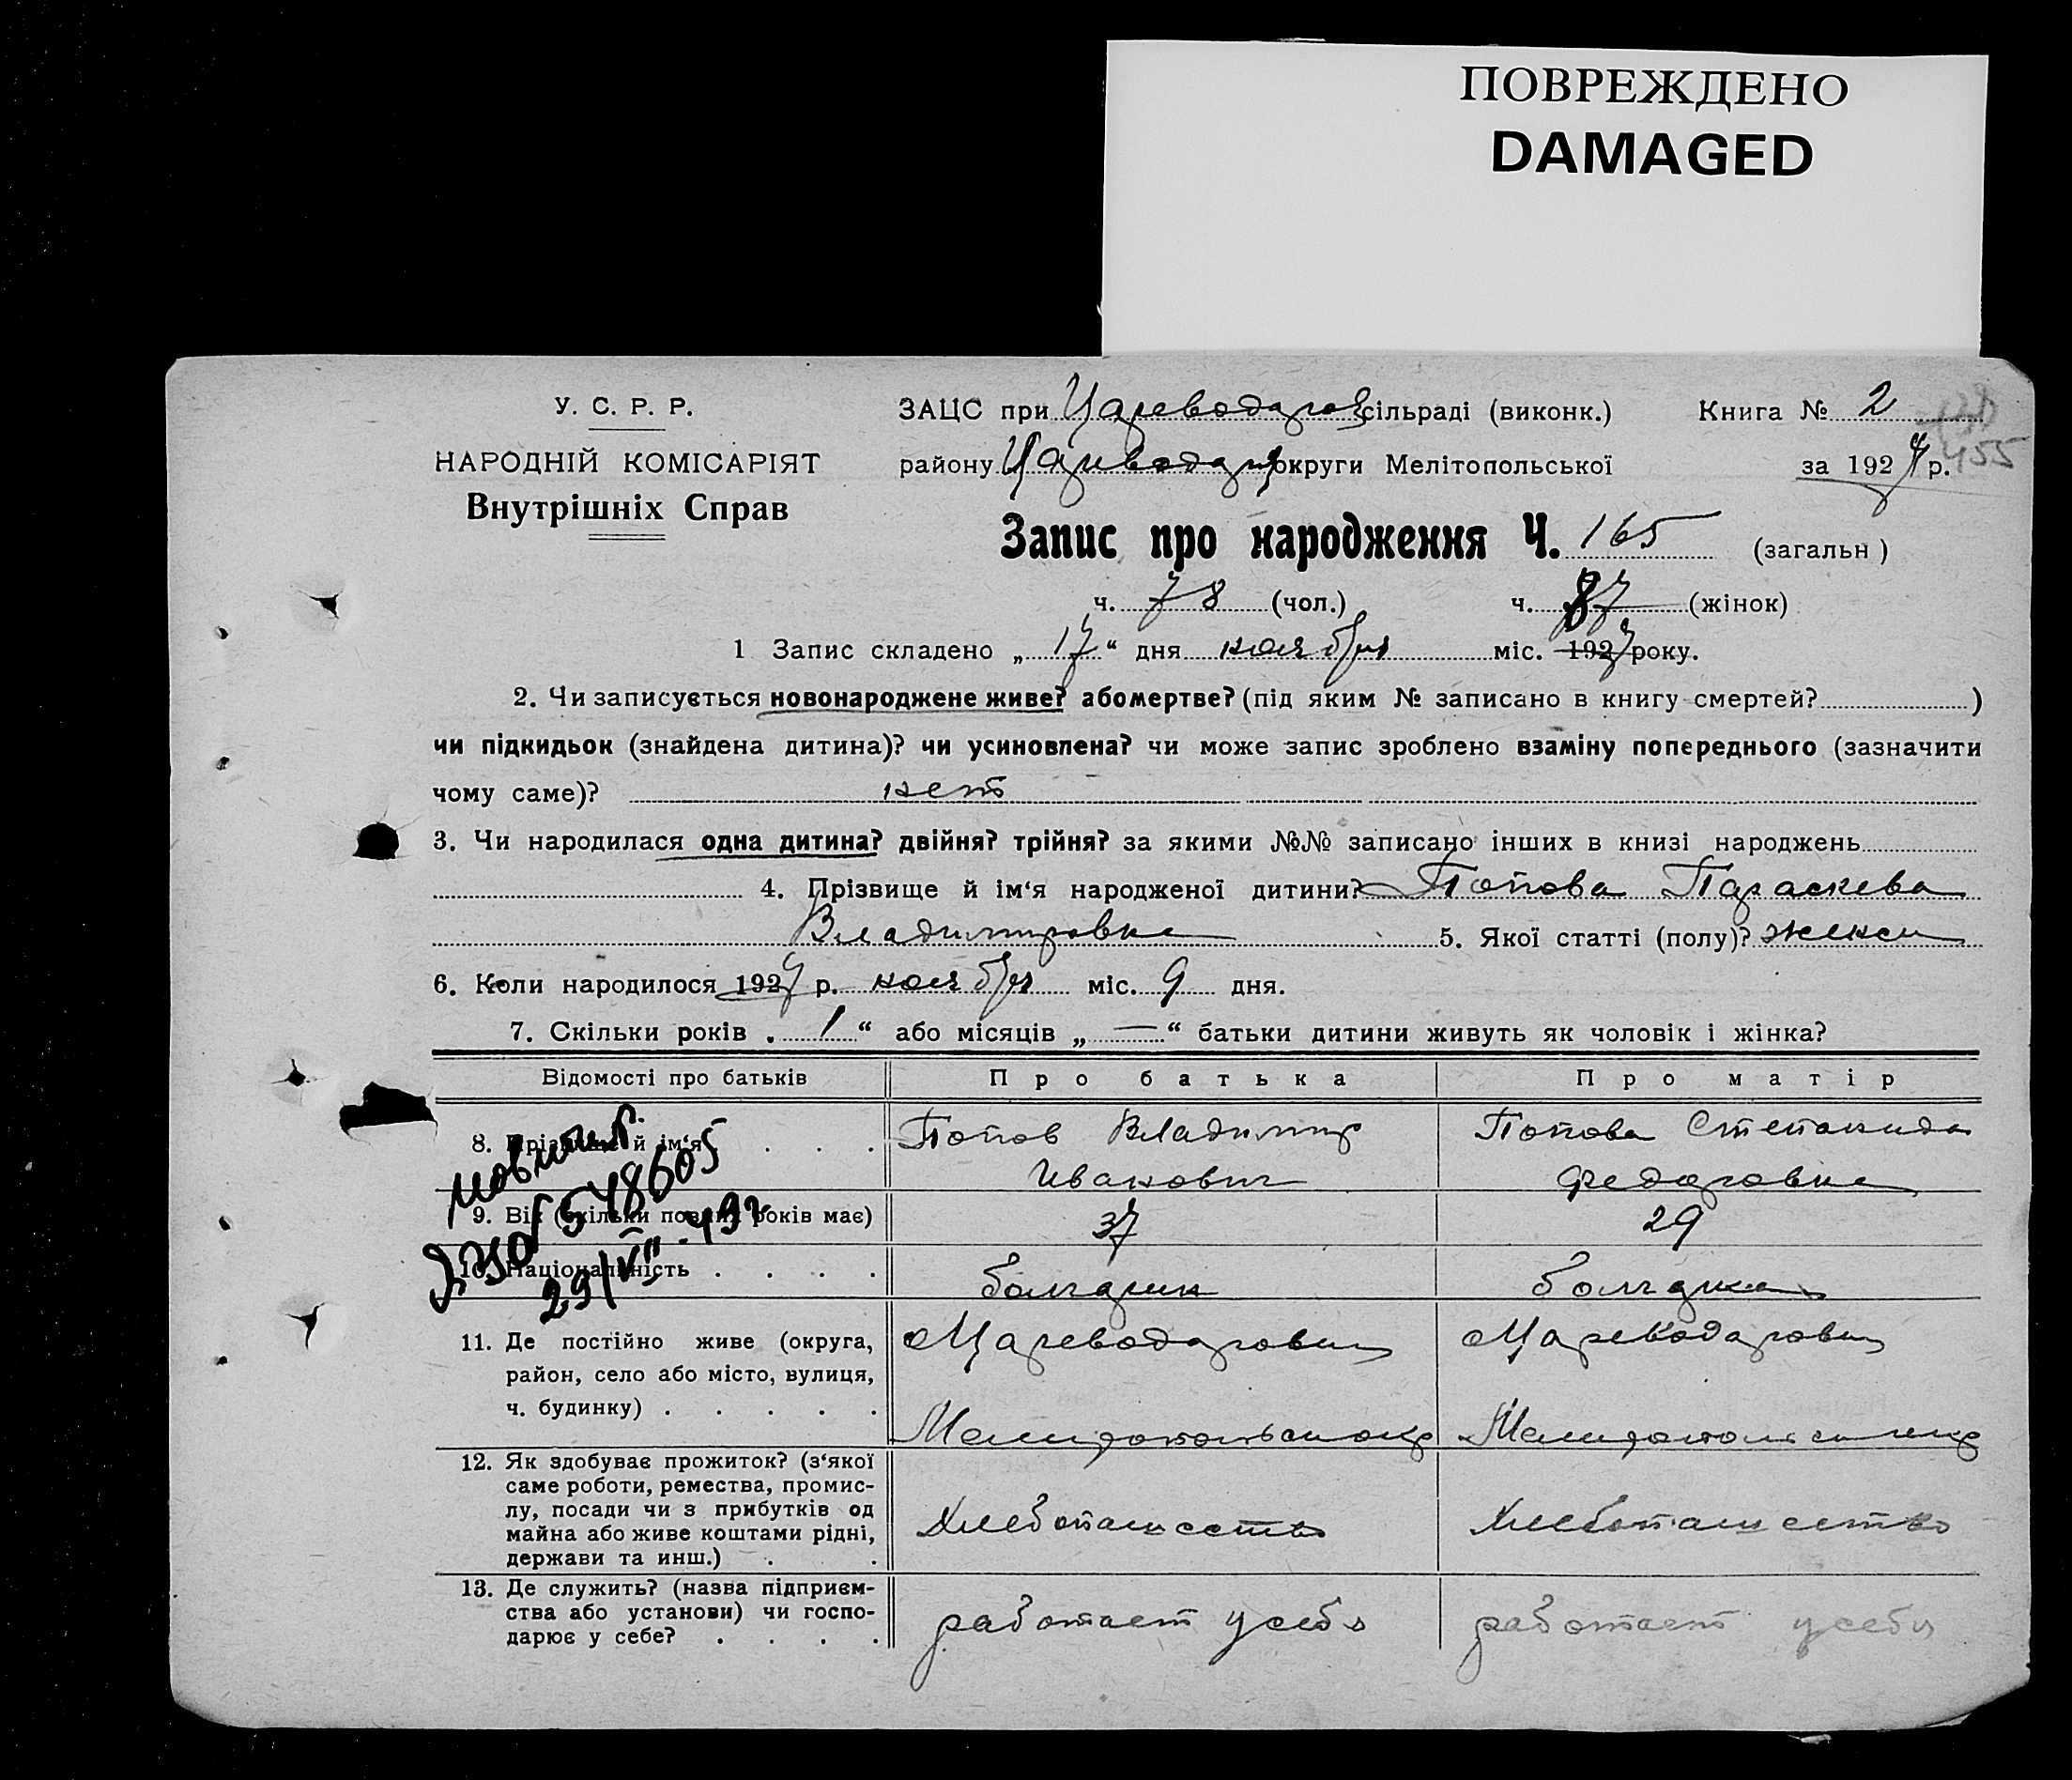 ПОВРЕЖДЕНО
DAMAGED
У. С. Р. Р.
НАРОДНІЙ КОМІСАРІЯТ
Внутрішніх Справ
ЗАЦС при Цареводаров сільраді (виконк.) Книга № 2
району Цареводар округи Мелітопольської за 1927 р. 455
Запис про народження Ч. 165 (загальн )
ч. 78 (чол.) ч. 87 (жінок)
1 Запис складено „ 17 “ дня ноября міс. 1927 року.
2. Чи записується новонароджене живе? або мертве? (під яким № записано в книгу смертей? )
чи підкидьок (знайдена дитина)? чи усиновлена? чи може запис зроблено взаміну попереднього (зазначити
чому саме)? нет
3. Чи народилася одна дитина? двійня? трійня? за якими №№ записано інших в книзі народжень
4. Прізвище й ім‘я народженої дитини? Попова Параскева
Владимировна 5. Якої статті (полу)? женск
6. Коли народилося 1927 р. ноября міс. 9 дня.
7. Скільки років „ 1 “ або місяців „ — “ батьки дитини живуть як чоловік і жінка?
Відомості про батьків Про батька Про матір
8. Прізвище й ім‘я . . . Попов Владимир Попова Степанида
Иванович Федоровна
9. Вік (скільки повних років має) 37 29
10. Національність . . . . болгарин болгарка
548605
29/VII - 49г
11. Де постійно живе (округа, Цареводаровка Цареводаровка
район, село або місто, вулиця,
ч. будинку) . . . . . Мелитопольск окр Мелитопольск окр
12. Як здобуває прожиток? (з‘якої
саме роботи, ремества, промис-
лу, посади чи з прибутків од Хлебопашество Хлебопашество
майна або живе коштами рідні,
держави та инш.) . .
13. Де служить? (назва підприєм-
ства або установи) чи госпо- работает у себя работает у себя
дарює у себе? . . . .